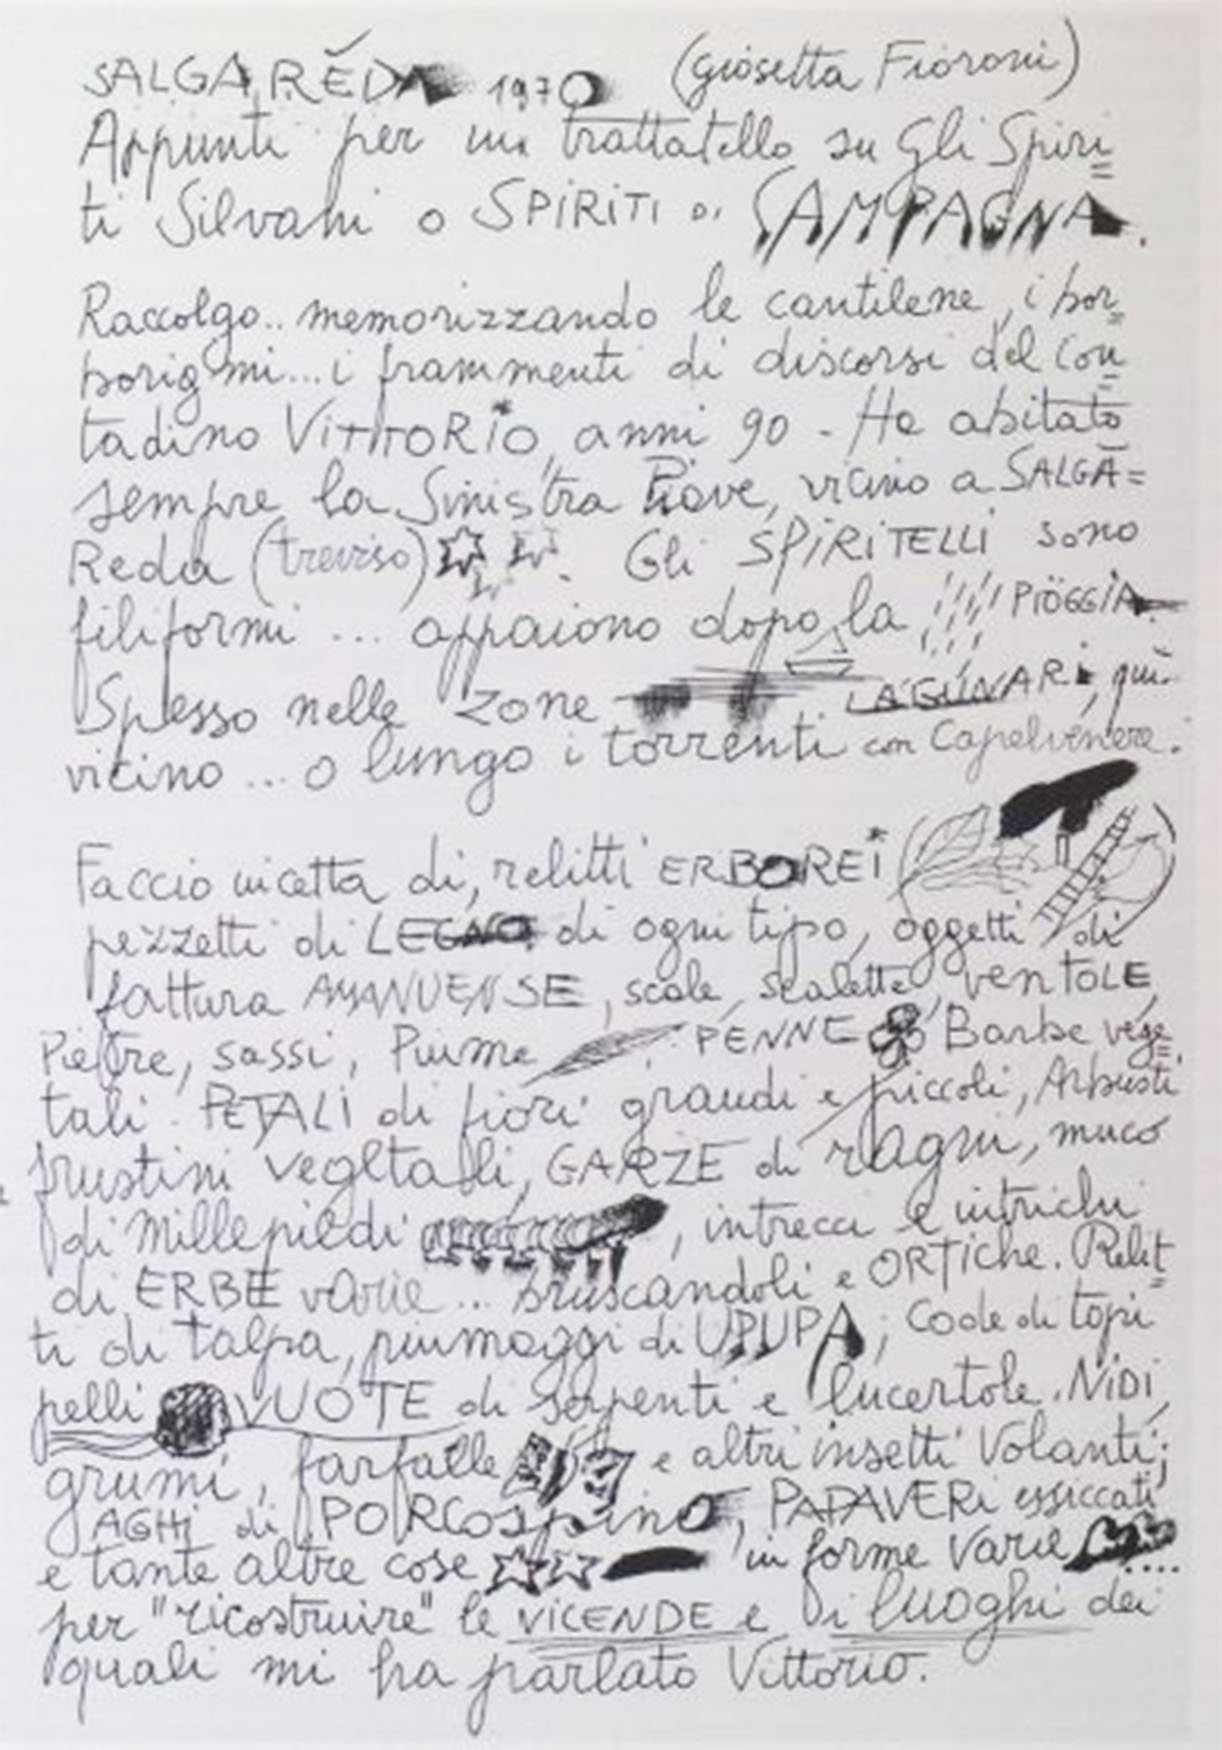 SALGARĔDA 1970 (Giosetta Fioroni)
Appunti per un trattatello su Gli Spiri=
ti Silvani o SPIRITI DI CAMPAGNA.
Raccolgo.. memorizzando le cantilene, i bor=
borigmi... i frammenti di discorsi del con=
tadino VITTORIO, anni 90 - Ha abitato
sempre la Sinistra Piave, vicino a SALGA=
Reda (treviso). Gli SPIRITELLI sono
filiformi ... appaiono dopo la PIÖGGIA.
Spesso nelle zone LAGUNARI, qui
vicino ... o lungo i torrenti con Capelvenere.
Faccio incetta di, relitti ERBOREI (
pezzetti di LEGNO di ogni tipo, oggetti di)
fattura AMANUENSE, scale, scalette, VENTOLE,
Pietre, sassi, Piume PENNE Barbe vege=
tali. PETALI di fiori grandi e piccoli, Arbusti
frustini vegetali, GARZE di ragni, muco
di Millepiedi, intrecci e intrichi
di ERBE varie ... bruscandoli e ORTiche. Relit=
ti di talpa, piumaggi di UPUPA, Code di topi
pelli VUOTE di serpenti e lucertole. NIDI,
grumi, farfalle e altri insetti Volanti;
AGHI di PORCOspino, PAPAVERI essiccati
e tante altre cose in forme varie ....
per "ricostruire" le VICENDE e i luoghi dei
quali mi ha parlato Vittorio.